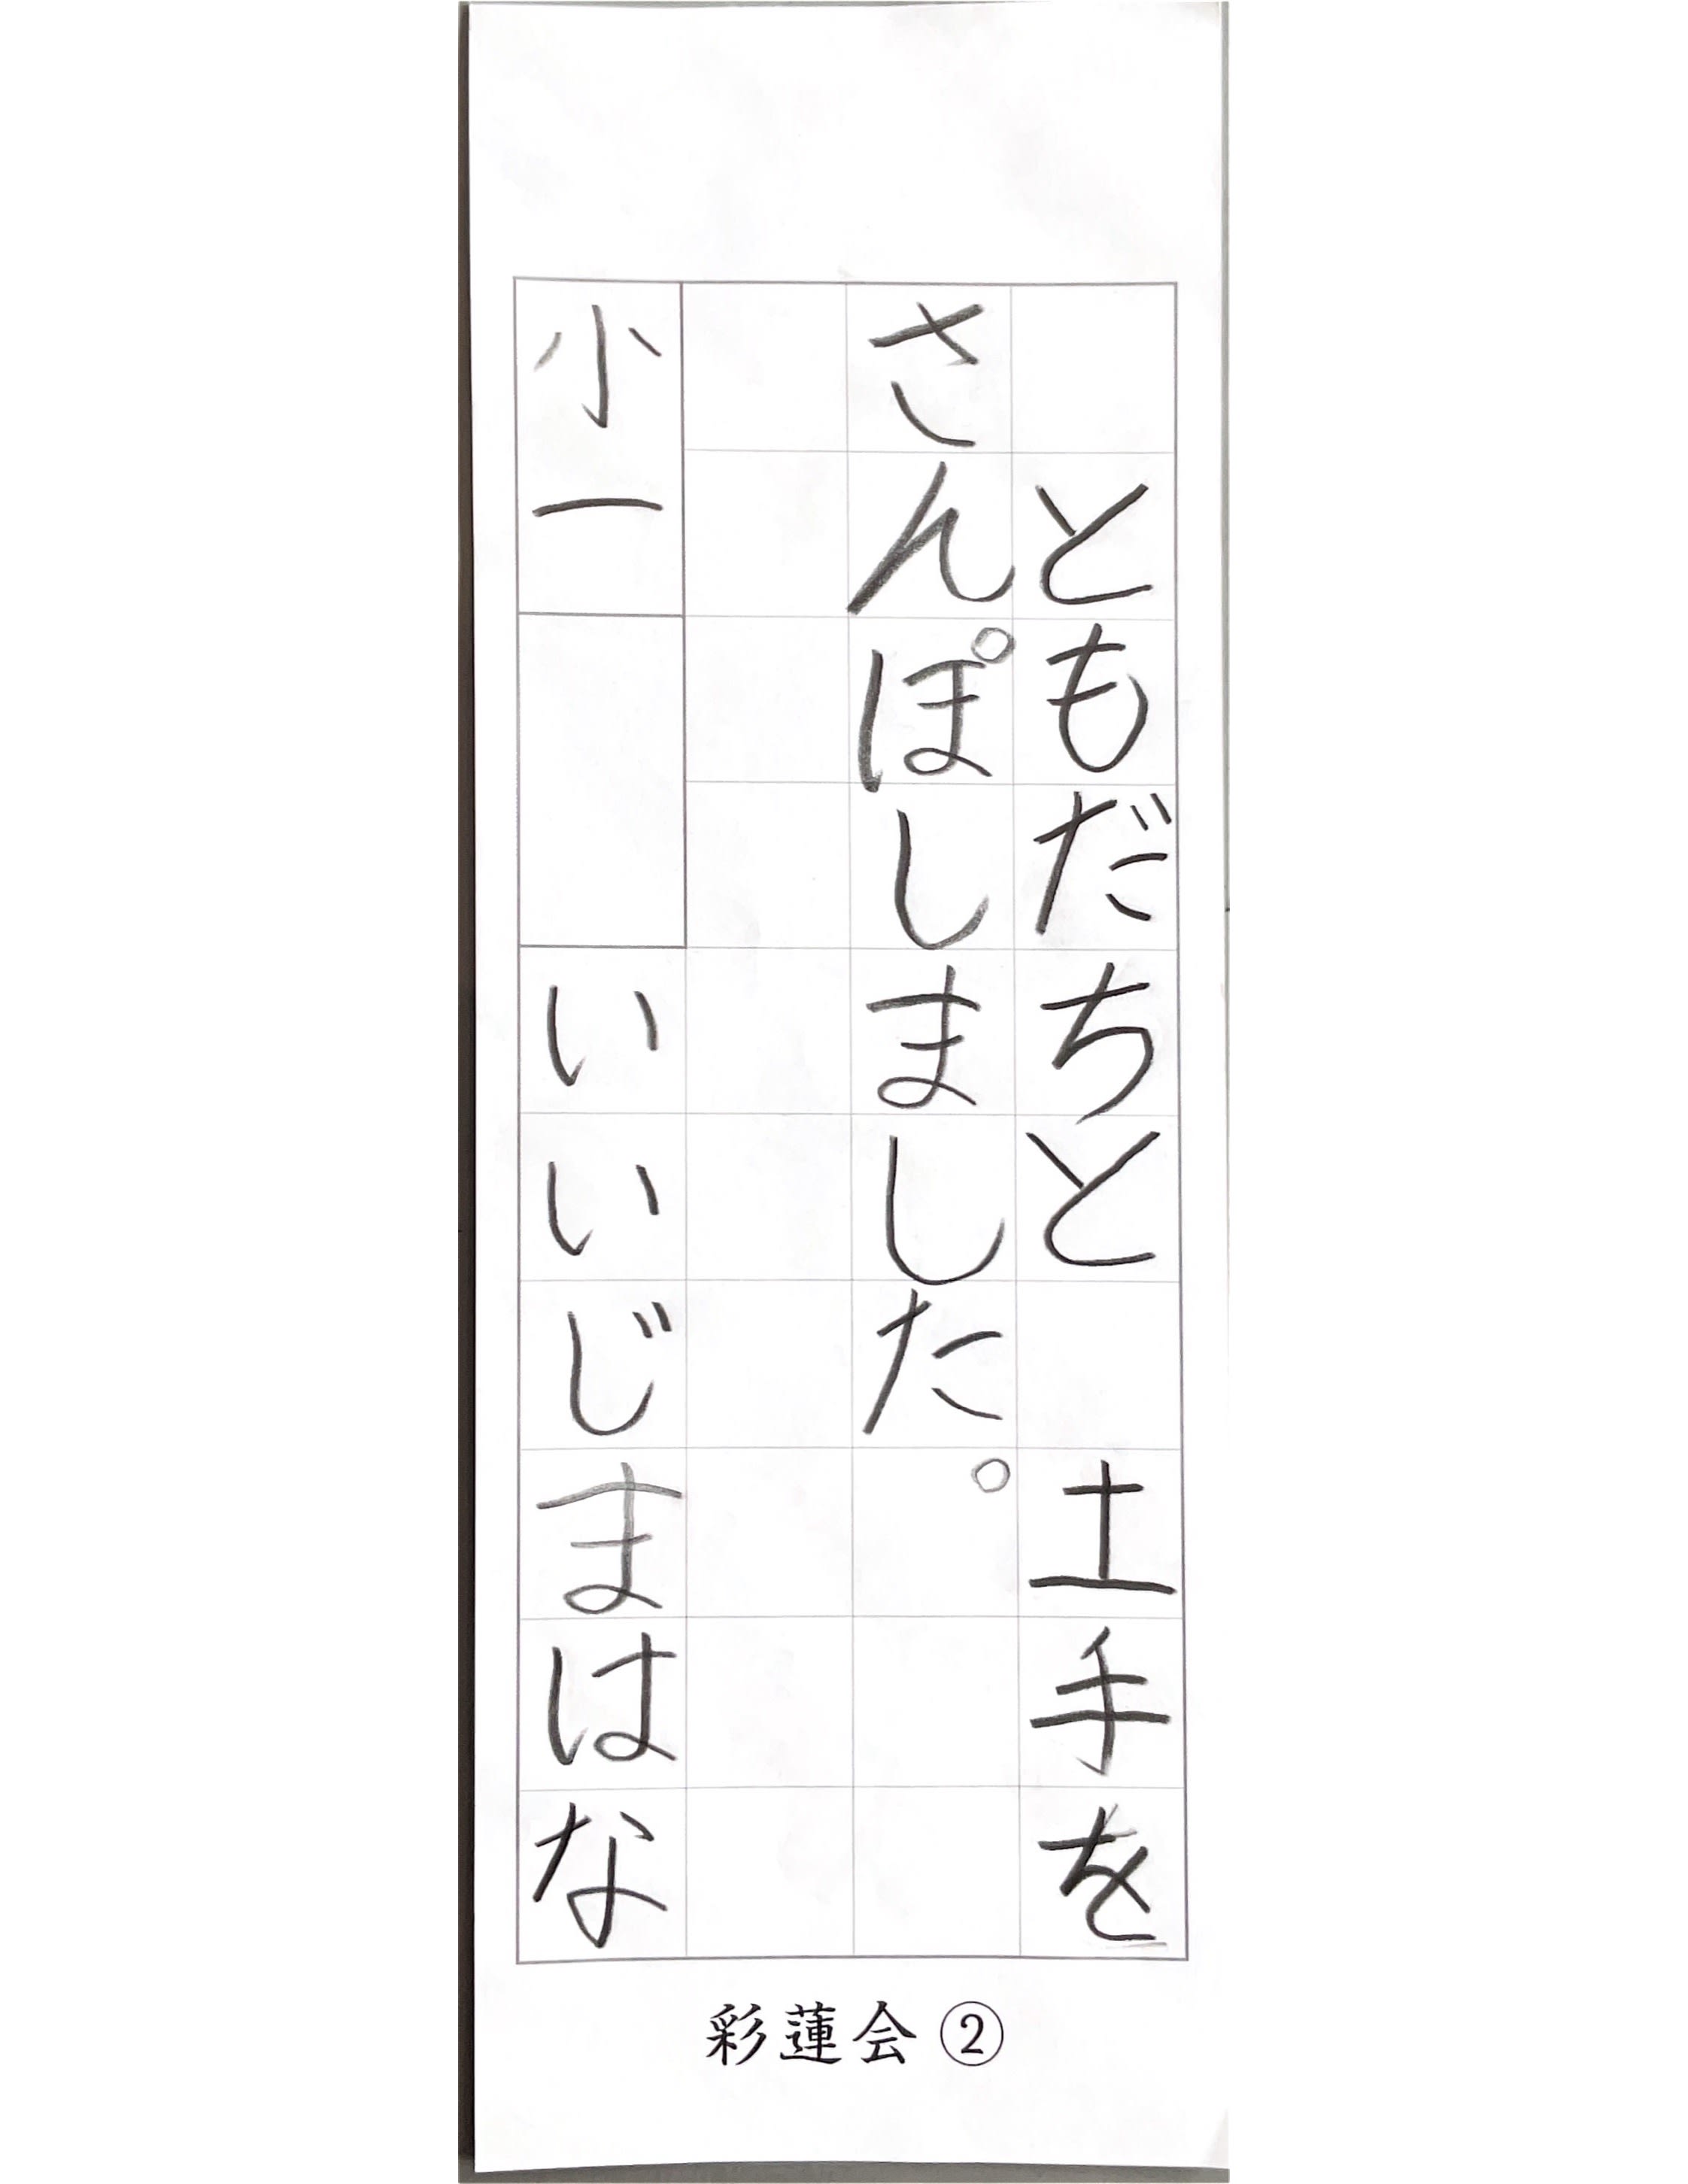 ともだちと　土手を
さんぽしました。
小一　いいじまはな
彩蓮会②